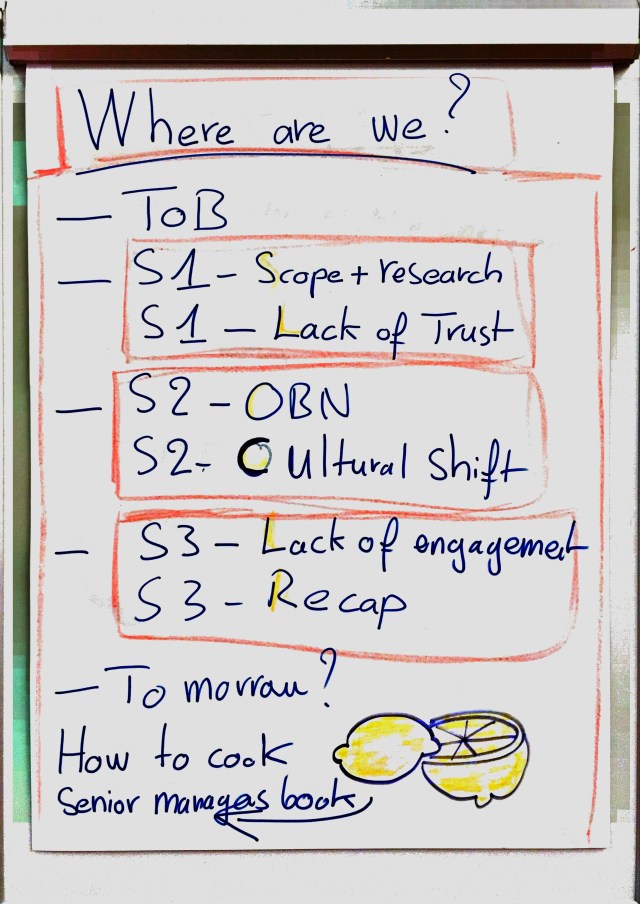 Where are we?
— ToB
— S1 - Scope + research
S1 - Lack of Trust
— S2 - OBN
S2- Cultural Shift
— S3 - Lack of engagemet
S3 - Recap
— To morrau?
How to cook
Senior managas book